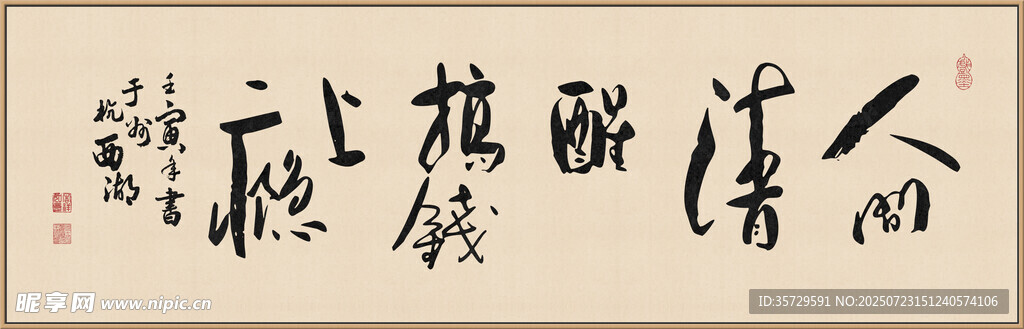 人间
清
醒
搞錢
上
瘾
壬寅年書
于杭州
西湖
昵享网 www.nipic.cn
ID:35729591 NO:20250723151240574106